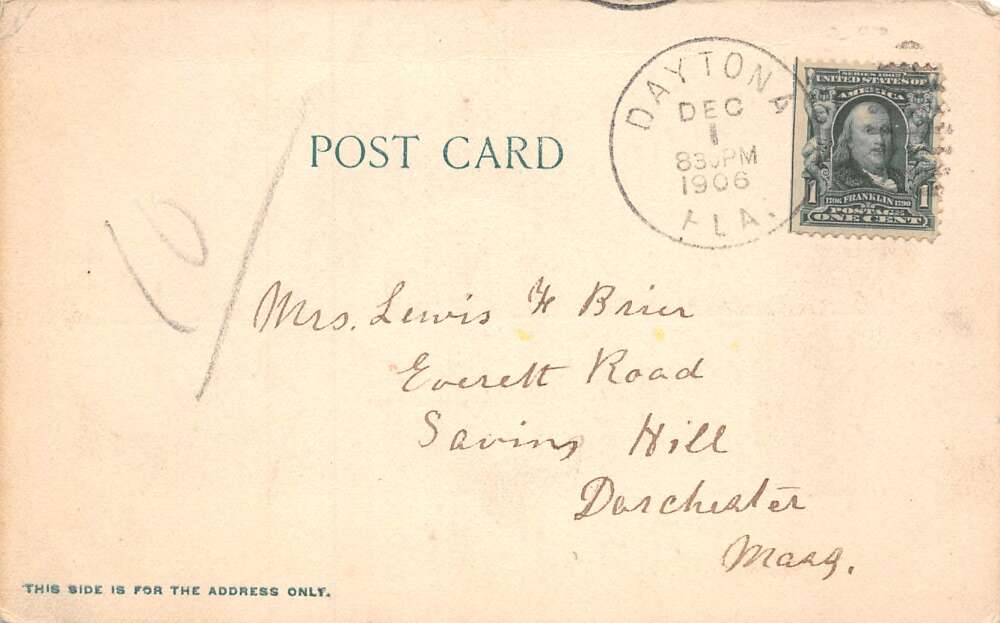 DAYTONA
DEC
1
830PM
1906
FLA.
SERIES 1902
UNITED STATES OF
AMERICA
1706 FRANKLIN 1790
1 POSTAGE 1
ONE CENT
POST CARD
10
Mrs. Lewis F Brier
Everett Road
Savins Hill
Dorchester
Mass.
THIS SIDE IS FOR THE ADDRESS ONLY.